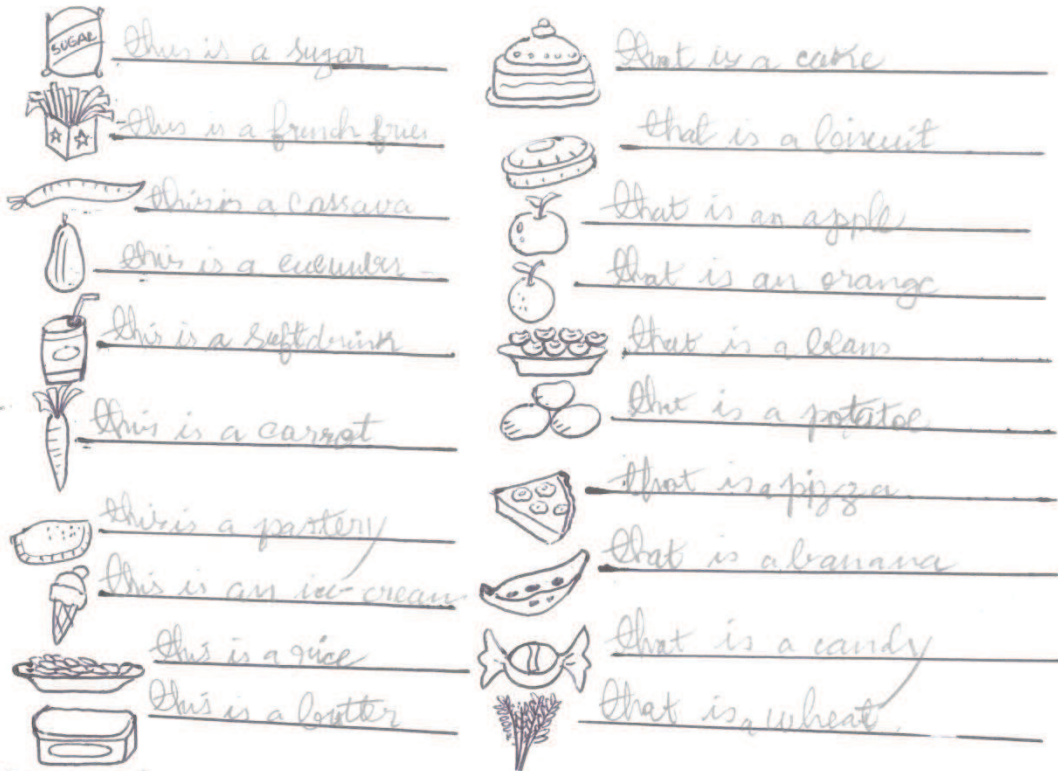 SUGAR
this is a sugar
this is a french fries
this is a cassava
this is a cucumber
this is a softdrink
this is a carrot
this is a pastery
this is an ice-cream
this is a rice
this is a butter
that is a cake
that is a biscuit
that is an apple
that is an orange
that is a beans
that is a potatoe
that is a pizza
that is a banana
that is a candy
that is a wheat.